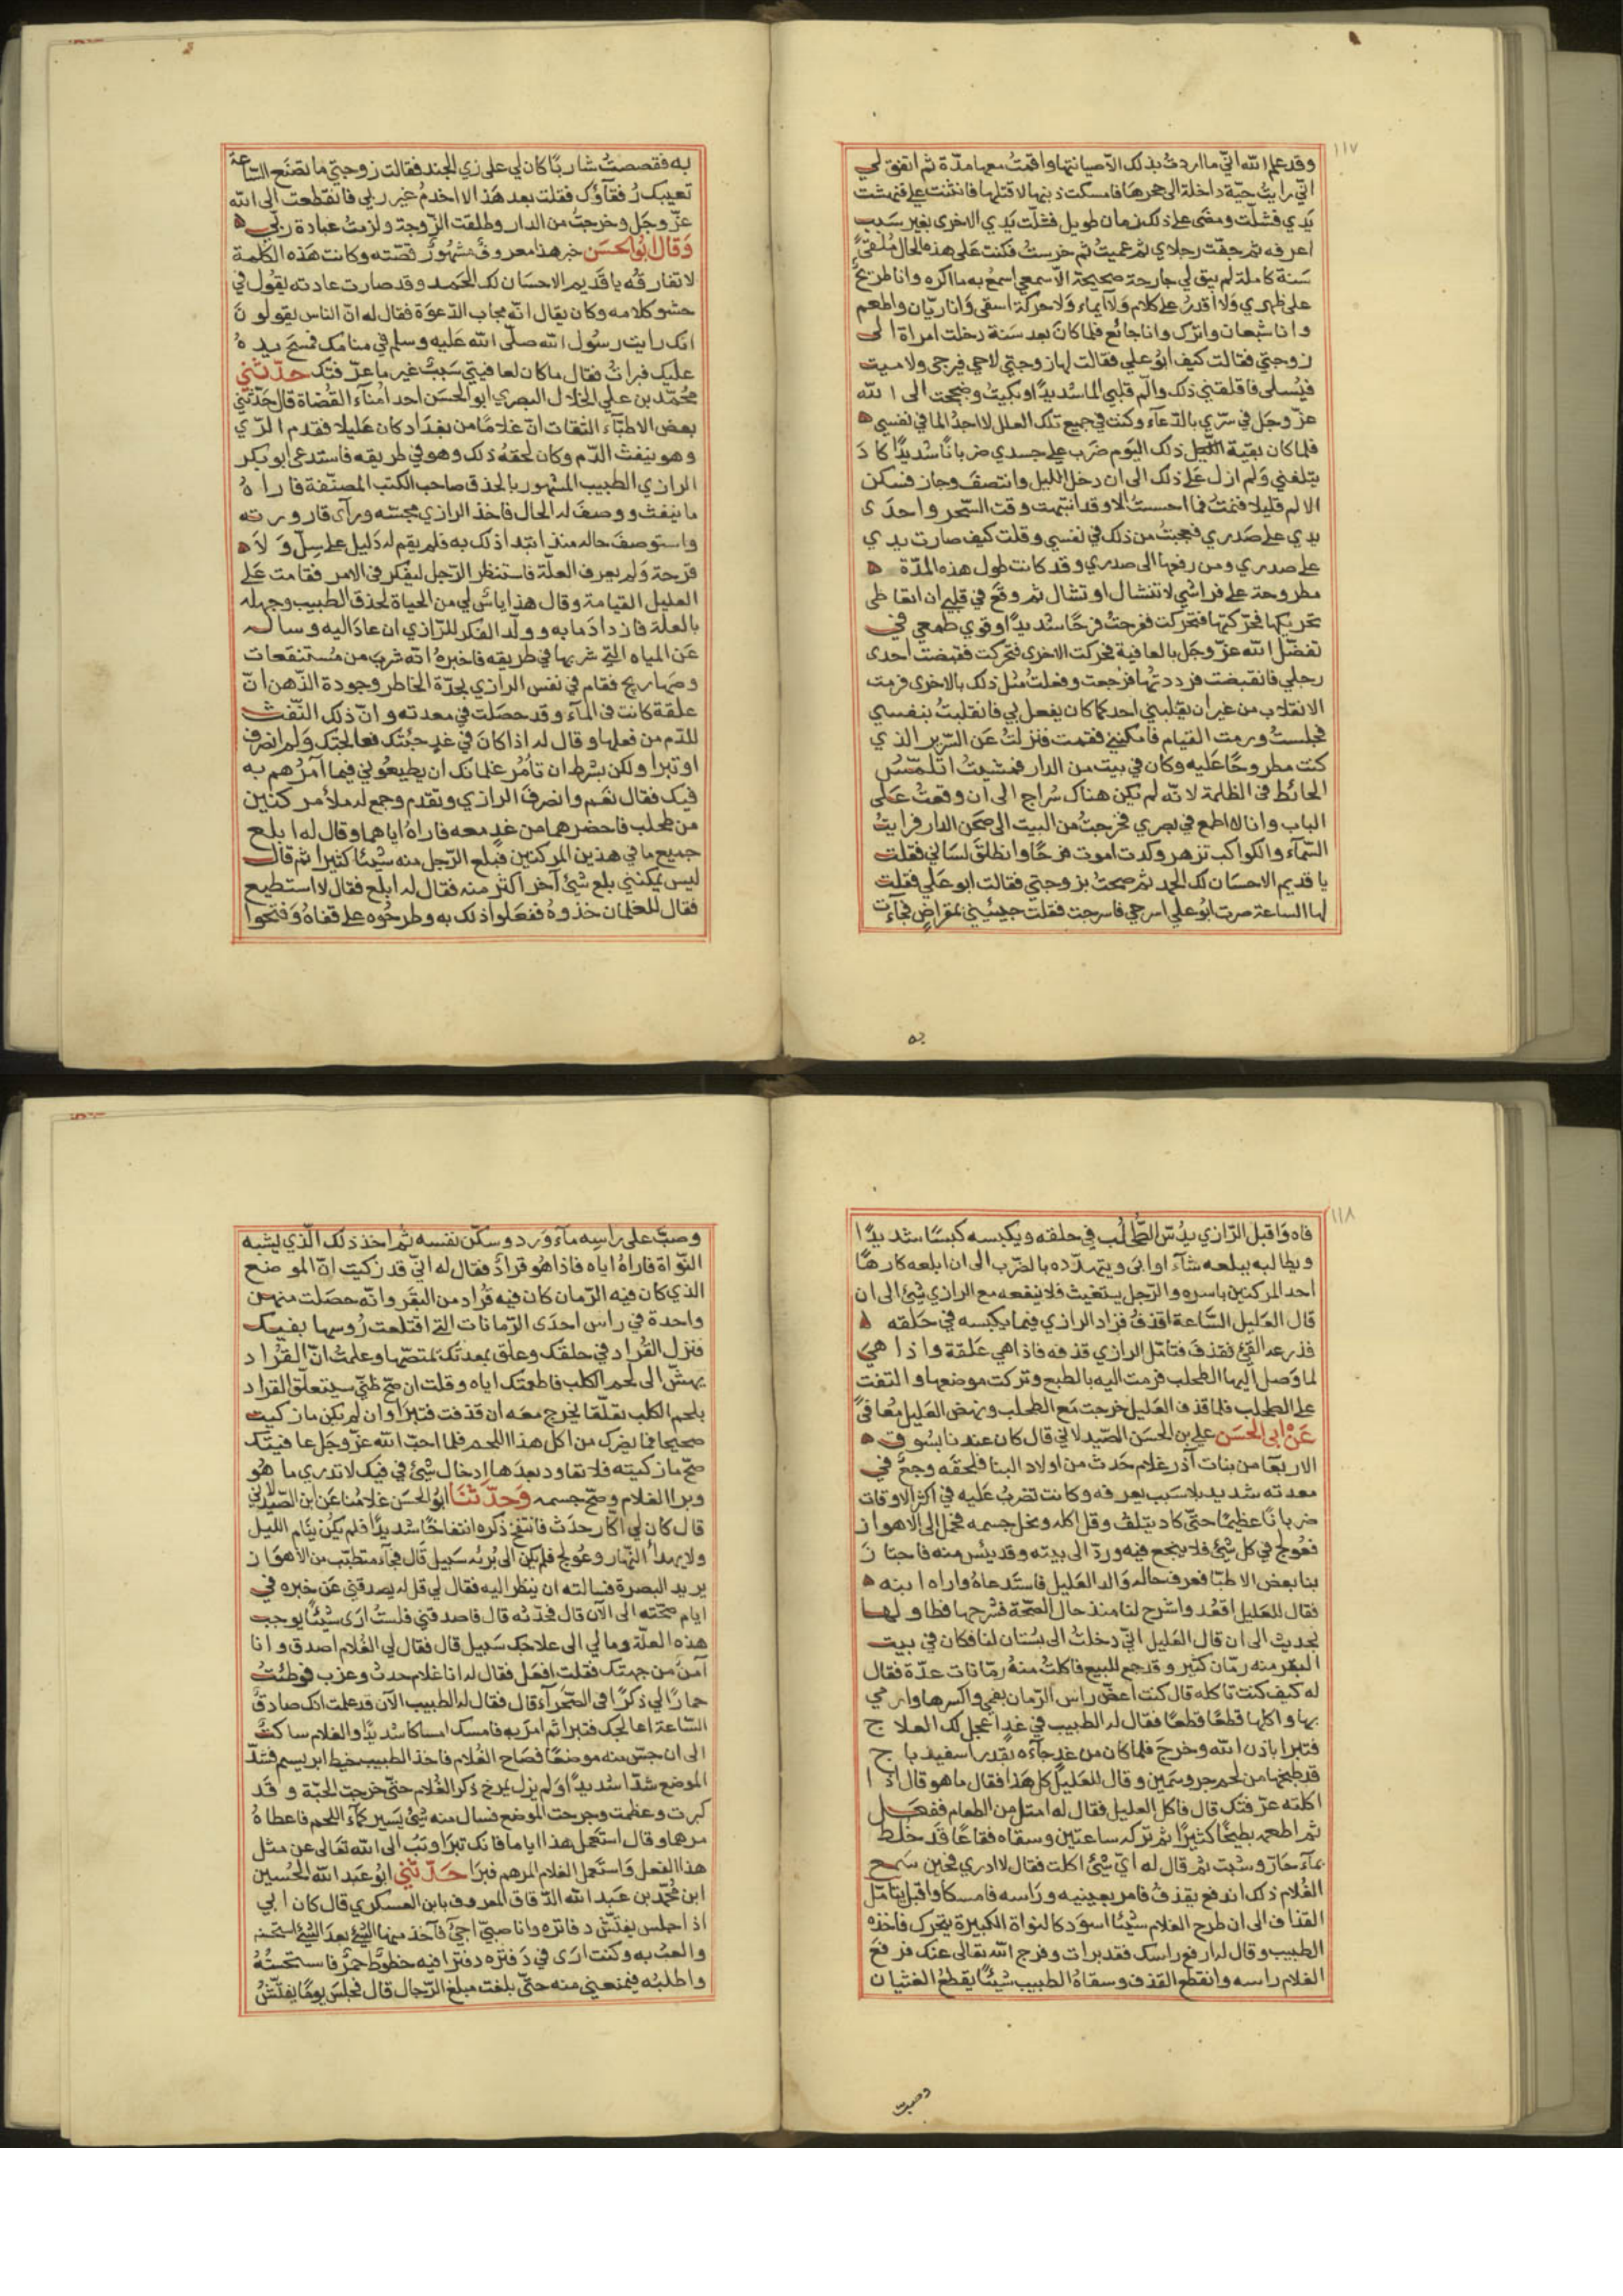 ١١٧
وقد علم الله اني ما اردت بذلك الا صيانتها واقمت معها مدة ثم اتفق لي
اني رايت حية داخلة الى حجرها فامسكت ذنبها لاقتلها فانثنت علي فنهشت
يدي فشلت ومضى على ذلك زمان طويل فشلت يدي الاخرى بغير سبب
اعرفه ثم جفت رجلاي ثم عميت ثم خرست فكنت على هذه الحال ملقى
سنة كاملة لم يبق لي جارحة صحيحة الا سمعي اسمع به ما اكره وانا طريح
على ظهري ولا اقدر على كلام ولا ايماء ولا حركة اسقى وانا ريان واطعم
وانا شبعان واترك وانا جائع فلما كان بعد سنة دخلت امراة الى
زوجتي فقالت كيف ابو علي فقالت لها زوجتي لا حي فيرجى ولا ميت
فيسلى فاقلقني ذلك والم قلبي الما شديدا وبكيت وضججت الى الله
عز وجل في سري بالدعاء وكنت في جميع تلك العلل لا اجد الما في نفسي
فلما كان بقية ذلك اليوم ضرب علي جسدي ضربانا شديدا كاد
يتلفني ولم ازل على ذلك الى ان دخل الليل وانتصف وجاز فسكن
الالم قليلا فنمت فما احسست الا وقد انتبهت وقت السحر واحدى
يدي على صدري فعجبت من ذلك في نفسي وقلت كيف صارت يدي
على صدري ومن رفعها الى صدري وقد كانت طول هذه المدة
مطروحة على فراشي لا تنشال او تشال ثم وقع في قلبي ان اتعاطى
تحريكها فحركتها فتحركت ففرحت فرحا شديدا وقوي طمعي في
تفضل الله عز وجل بالعافية فحركت الاخرى فتحركت فقبضت احدى
رجلي فانقبضت فرددتها فرجعت وفعلت مثل ذلك بالاخرى فرمت
الانقلاب من غير ان يقلبني احد كما كان يفعل بي فانقلبت بنفسي
فجلست ورمت القيام فامكنني فقمت فنزلت عن السرير الذي
كنت مطروحا عليه وكان في بيت من الدار فمشيت اتلمس
الحائط في الظلمة لانه لم يكن هناك سراج الى ان وقعت على
الباب وانا لا اطمع في بصري فخرجت من البيت الى صحن الدار فرايت
السماء والكواكب تزهر وكدت اموت فرحا وانطلق لساني فقلت
يا قديم الاحسان لك الحمد ثم صحت بزوجتي فقالت ابو علي فقلت
لها الساعة صرت ابو علي اسرجي فاسرجت فقلت جيئيني بمقراض فجاءت
به
به فقصصت شاربا كان لي على زي الجند فقالت زوجتي ما تصنع الساعة
تعيبك رفقاؤك فقلت بعد هذا لا اخدم غير ربي فانقطعت الى الله
عز وجل وخرجت من الدار وطلقت الزوجة ولزمت عبادة ربي
وقال ابو الحسن خبر هذا معروف مشهور قصته وكانت هذه الكلمة
لا تفارقه يا قديم الاحسان لك الحمد وقد صارت عادته يقول في
حشو كلامه وكان يقال انه مجاب الدعوة فقال له ان الناس يقولون
انك رايت رسول الله صلى الله عليه وسلم في منامك فمسح يده
عليك فبرات فقال ما كان لعافيتي سبب غير ما عرفتك حدثني
محمد بن علي الخلال البصري ابو الحسن احد امناء القضاة قال حدثني
بعض الاطباء الثقات ان غلاما من بغداد كان عليلا فقدم الري
وهو ينفث الدم وكان لحقه ذلك وهو في طريقه فاستدعى ابو بكر
الرازي الطبيب المشهور بالحذق صاحب الكتب المصنفة فاراه
ما ينفث ووصف له الحال فاخذ الرازي مجسته وراى قارورته
واستوصف حاله منذ ابتدا ذلك به فلم يقم له دليل على سل ولا
قرحة ولم يعرف العلة فاستنظر الرجل ليفكر في الامر فقامت على
العليل القيامة وقال هذا ياس لي من الحياة لحذق الطبيب وجهله
بالعلة فازداد ما به وولد الفكر للرازي ان عاد اليه وساله
عن المياه التي شربها في طريقه فاخبره انه شرب من مستنقعات
وصهاريج فقام في نفس الرازي لحدة الخاطر وجودة الذهن ان
علقة كانت في الماء وقد حصلت في معدته وان ذلك النفث
للدم من فعلها وقال له اذا كان في غد جئتك فعالجتك ولم انصرف
او تبرا ولكن بشرط ان تامر غلمانك ان يطيعوني فيما امرهم به
فيك فقال نعم وانصرف الرازي وتقدم وجمع له ملا مركنين
من طحلب فاحضرهما من غد معه فاراه اياهما وقال له ابلع
جميع ما في هذين المركنين فبلع الرجل منه شيئا كثيرا ثم قال
ليس يمكنني بلع شئ آخر اكثر منه فقال له ابلع فقال لا استطيع
فقال للغلمان خذوه ففعلوا ذلك به وطرحوه على قفاه وفتحوا
١١٨
فاه واقبل الرازي يدس الطحلب في حلقه ويكبسه كبسا شديدا
ويطالبه ببلعه شاء او ابى ويتهدده بالضرب الى ان ابلعه كارها
احد المركنين باسره والرجل يستغيث فلا ينفعه مع الرازي شئ الى ان
قال العليل الساعة اقذف فزاد الرازي فيما يكبسه في حلقه
فذرعه القئ فقذف فتامل الرازي قذفه فاذا هي علقة واذا هي
لما وصل اليها الطحلب فرمت اليه بالطبع وتركت موضعها والتفت
على الطحلب فلما قذف العليل خرجت مع الطحلب ونهض العليل معافى
عن ابي الحسن علي بن الحسن الصيدلاني قال كان عندنا بسوق
الاربعا من بنات آذر غلام حدث من اولاد البنا فلحقه وجع في
معدته شديد بلا سبب يعرفه وكانت تضرب عليه في اكثر الاوقات
ضربانا عظيما حتى كاد يتلف وقل اكله ونحل جسمه فحمل الى الاهواز
فعولج في كل شئ فلا ينجع فيه ورد الى بيته وقد يئس منه فاجتاز
بنا بعض الاطبا فعرف حاله والد العليل فاستدعاه واراه ابنه
فقال للعليل اقعد واشرح لنا منذ حال الصحة فشرحها فطاولها
لحديث الى ان قال العليل اني دخلت الى بستان لنا فكان في بيت
البقر منه رمان كثير وقد جمع للبيع فاكلت منه رمانات عدة فقال
له كيف كنت تاكله قال كنت اعض راس الرمان بفمي واكسرها وارمي
بها واكلها قطعا قطعا فقال له الطبيب في غد اعجل لك العلاج
فتبرا باذن الله وخرج فلما كان من غد جاءه بقدر اسفيدباج
قد طبخها من لحم جرو سمين وقال للعليل كل هذا فقال ما هو قال اذا
اكلته عرفتك قال فاكل العليل فقال له امتل من الطعام ففعل
ثم اطعمه بطيخا كثيرا ثم تركه ساعتين وسقاه فقاعا قد خلط
بماء حار وشبت ثم قال له اي شئ اكلت فقال لا ادري فحين سمع
الغلام ذلك اندفع يقذف فامر بعينيه وراسه فامسكا واقبل يتامل
القذاف الى ان طرح الغلام شيئا اسود كالنواة الكبيرة يتحرك فاخذه
الطبيب وقال له ارفع راسك فقد برات وفرج الله تعالى عنك فرفع
الغلام راسه وانقطع القذف وسقاه الطبيب شيئا يقطع الغثيان
وصب
وصب على راسه ماء ورد وسكن نفسه ثم اخذ ذلك الذي يشبه
النواة فاراه اياه فاذا هو قراد فقال له اني قد زكيت ان الموضع
الذي كان فيه الرمان كان فيه قراد من البقر وانه حصلت منهن
واحدة في راس احدى الرمانات التي اقتلعت رؤسها بفيك
فنزل القراد في حلقك وعلق بمعدتك يمتصها وعلمت ان القراد
يهش الى لحم الكلب فاطعمتك اياه وقلت ان صح ظني سيتعلق القراد
بلحم الكلب تعلقا يخرج معه ان قذفت فتبرا وان لم يكن ما زكيت
صحيحا فما يضرك من اكل هذا اللحم فلما احب الله عز وجل عافيتك
صح ما زكيته فلا تعاود بعدها ادخال شئ في فيك لا تدري ما هو
وبرا الغلام وصح جسمه وحدثنا ابو الحسن غلامنا عن ابن الصيدلاني
قال كان لي اكار حدث فانتفخ ذكره انتفاخا شديدا فلم يكن ينام الليل
ولا يهدأ النهار وعولج فلم يكن الى برئه سبيل قال فجاء متطبب من الاهواز
يريد البصرة فسالته ان ينظر اليه فقال لي قل له يصدقني عن خبره في
ايام صحته الى الآن قال فحدثه قال فاصدقني فلست ارى شيئا يوجب
هذه العلة وما لي الى علاجك سبيل قال فقال لي الغلام اصدق وانا
آمن من جهتك فقلت افعل فقال له انا غلام حدث وعزب فوطئت
حمارا لي ذكرا في الصحراء قال فقال له الطبيب الآن قد علمت انك صادق
الساعة اعالجك فتبرا ثم امر به فامسك امساكا شديدا والغلام ساكت
الى ان جس منه موضعا فصاح الغلام فاخذ الطبيب خيط ابريسم فشد
الموضع شدا شديدا ولم يزل يمرخ ذكر الغلام حتى خرجت الحبة وقد
كبرت وعظمت وجرحت الموضع فسال منه شئ يسير كماء اللحم فاعطاه
مرهما وقال استعمل هذا اياما فانك تبرا وتب الى الله تعالى عن مثل
هذا الفعل فاستعمل الغلام المرهم فبرا حدثني ابو عبد الله الحسين
ابن محمد بن عبد الله الدقاق المعروف بابن العسكري قال كان ابي
اذا جلس يفتش دفاتره وانا صبي اجئ فآخذ منها الشئ بعد الشئ استحسنه
والعب به وكنت ارى في دفتره دفترا فيه خطوط حمر فاستحسنته
واطلبه فيمنعني منه حتى بلغت مبلغ الرجال قال فجلس يوما يفتش